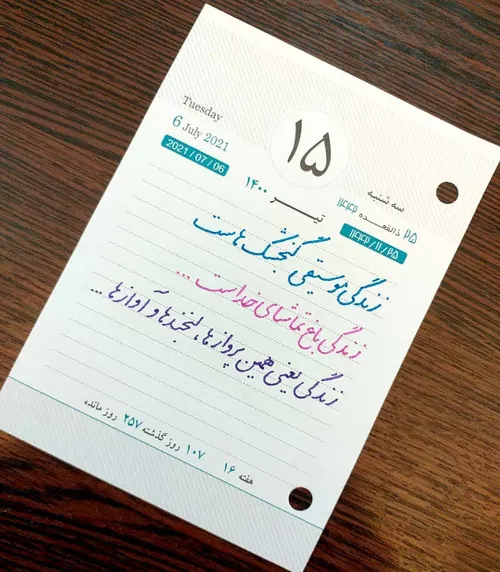 Tuesday
6 July 2021
2021 / 07 / 06
۱۵
تیــر ۱۴۰۰
سه شنبه
۲۵ ذالقعده ۱۴۴۲
۱۴۴۲ / ۱۱ / ۲۵
زندگی موسیقی گنجشک هاست
زندگی باغ تماشای خداست ...
زندگی یعنی همین پروازها، لبخندها و آوازها ...
هفته ۱۶ ۱۰۷ روز گذشته ۲۵۷ روز مانده